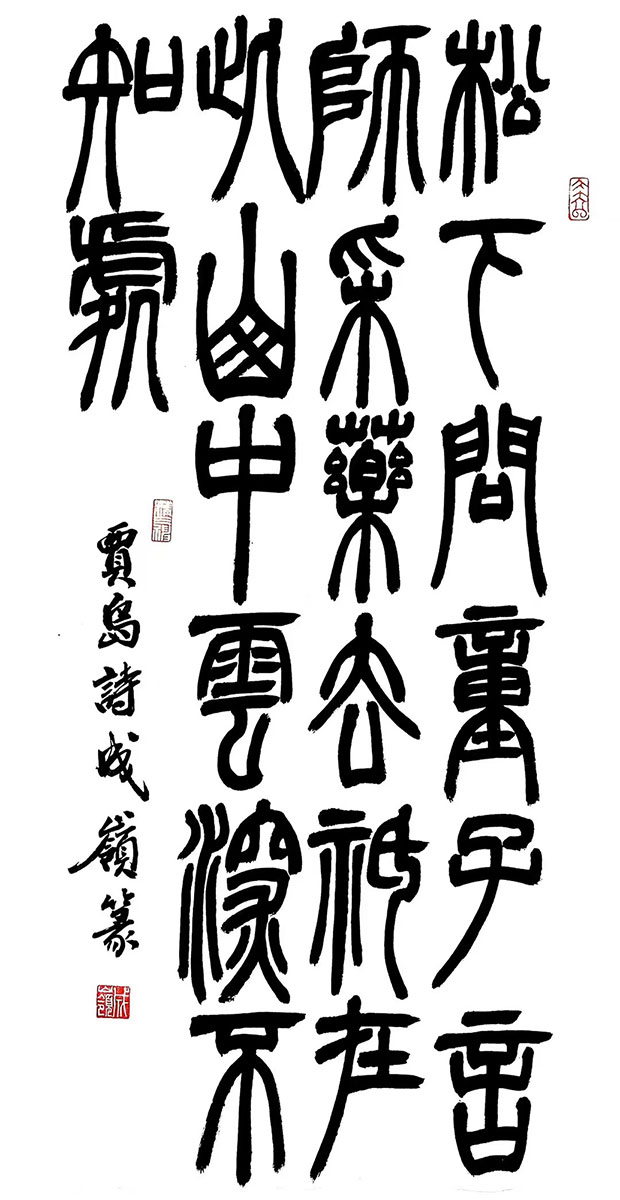 松下問童子言
師采藥去祇在
此山中雲深不
知處
賈島詩成嶺篆
成嶺